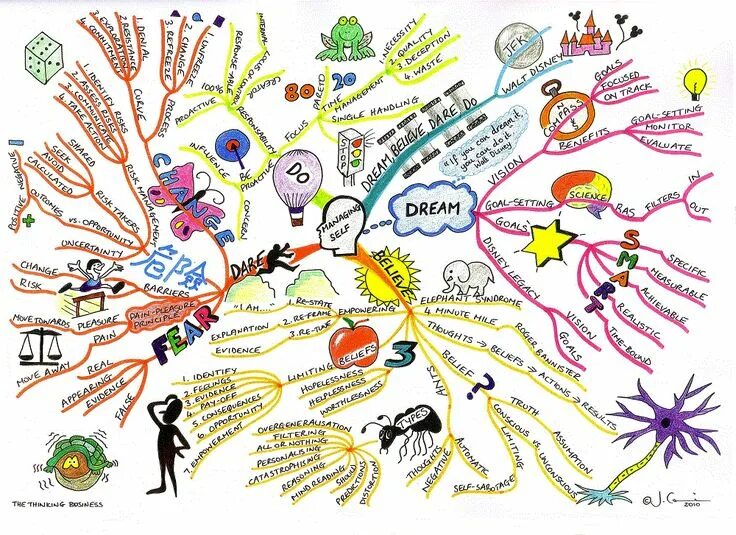 MANAGING SELF
DREAM BELIEVE DARE DO
WALT DISNEY
JFK
"If you can dream it,
you can do it"
Walt Disney
DREAM
VISION
COMPASS
GOALS
FOCUSED
ON TRACK
BENEFITS
GOAL-SETTING
MONITOR
EVALUATE
GOAL-SETTING
SCIENCE
RAS
FILTERS
IN
OUT
GOALS
SMART
SPECIFIC
MEASURABLE
ACHIEVABLE
REALISTIC
TIME-BOUND
DISNEY LEGACY
VISION
GOALS
BELIEVE
ELEPHANT SYNDROME
4 MINUTE MILE
ROGER BANNISTER
THOUGHTS → BELIEFS → ACTIONS → RESULTS
BELIEF
?
TRUTH
ASSUMPTION
CONSCIOUS vs UNCONSCIOUS
LIMITING
SELF-SABOTAGE
ANTS
AUTOMATIC
NEGATIVE
THOUGHTS
TYPES
OVERGENERALISATION
FILTERING
ALL OR NOTHING
PERSONALISING
CATASTROPHISING
REASONING
MIND READING
SHOULD
PREDICTIONS
DISTORTION
3
LIMITING BELIEFS
HOPELESSNESS
HELPLESSNESS
WORTHLESSNESS
1. IDENTIFY
2. FEELINGS
3. EVIDENCE
4. PAY-OFF
5. CONSEQUENCES
6. OPPORTUNITY
7. EMPOWERMENT
EMPOWERING
1. RE-STATE
"I AM...."
2. RE-FRAME
EXPLANATION
3. RE-TUNE
EVIDENCE
DARE
FEAR
FALSE
EVIDENCE
APPEARING
REAL
PAIN-PLEASURE
PRINCIPLE
PLEASURE
MOVE TOWARDS
PAIN
MOVE AWAY
BARRIERS
CHANGE
RISK
RISK MANAGEMENT
UNCERTAINTY
VS. OPPORTUNITY
OUTCOMES
POSITIVE
NEGATIVE
RISK TAKERS
CALCULATED
AVOID
SEEK
SHARED
1. IDENTIFY RISKS
2. ASSESS RISKS
3. COMMUNICATE
4. TAKE ACTION
CHANGE
CURVE
1. DENIAL
2. RESISTANCE
3. EXPLORATION
4. COMMITMENT
PROCESS
1. UNFREEZE
2. CHANGE
3. REFREEZE
DO
BE PROACTIVE
INFLUENCE
CONCERN
RESPONSIBILITY
100%
PROACTIVE
RESPONSE-ABLE
INTERNAL
FOCUS
PARETO
80
20
TIME MANAGEMENT
1. NECESSITY
2. QUALITY
3. DECEPTION
4. WASTE
SINGLE HANDLING
STOP
THE THINKING BUSINESS
2010